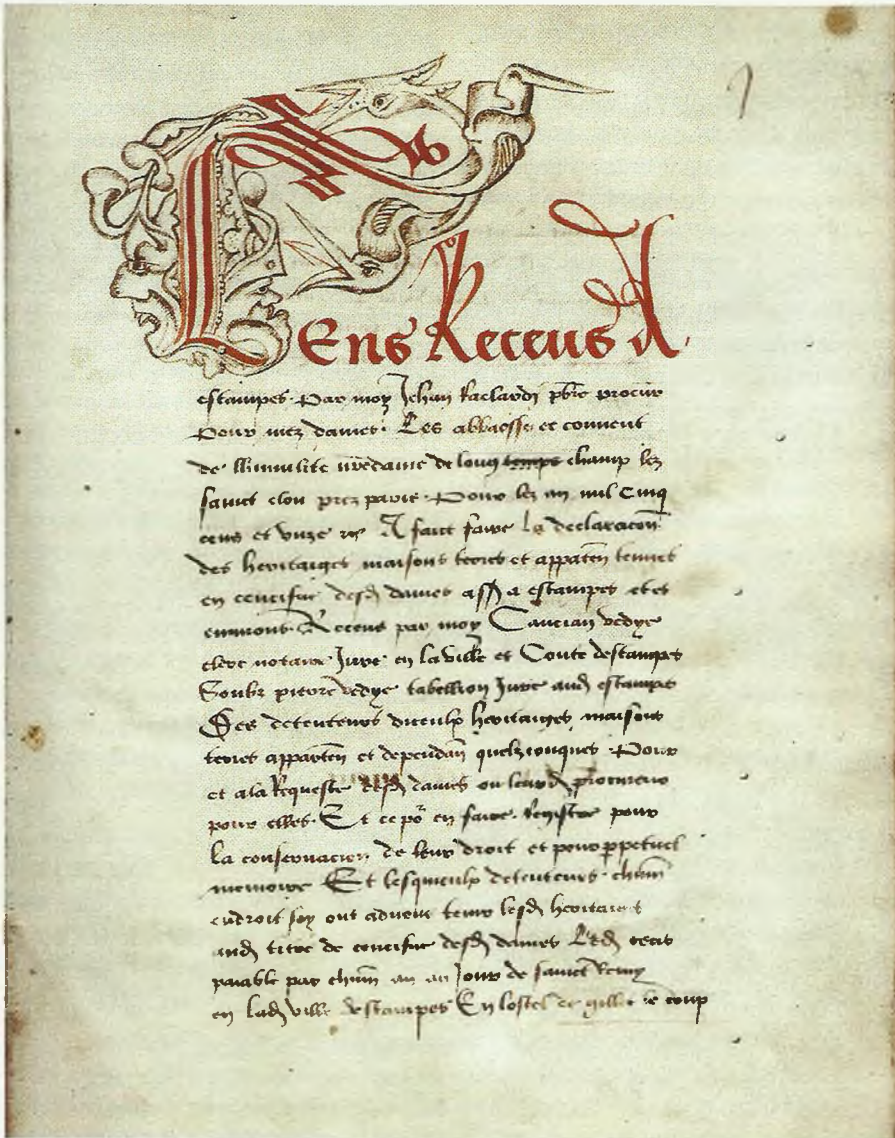 Cens Receus A
estampes. Par moy Jehan Raclardy pbre procur
Pour mez dames. Les abbaesse et couvent
de lhumilite nredame de long temps champ lez
sainct clou prez paris. Pour lez an mil cinq
cens et unze A faict faire la declaracion
des heritaiges maisons terres et apparten tenuz
en censive desd dames assis a estampes et es
environs. Receus par moy Cancian vedye
clerc notaire Jure en la ville et Conte destampes
Soubz pierre vedye tabellion Jure aud estampes
Des detenteurs diceulx heritaiges maisons
terres apparten et dependan quelzconques. Pour
et a la Requeste desd dames ou leurd procureur
pour elles. Et ce por en faire. Registre pour
la conservacion de leur droit et pour ppetuel
memoire Et lesquieulx detenteurs chun
endroit soy ont advoue tenir lesd heritaiges
aud titre de censive desd dames Lesd cens
paiable par chun an au Jour de sainct Remy
en lad ville destampes En lostel de gilles le coup